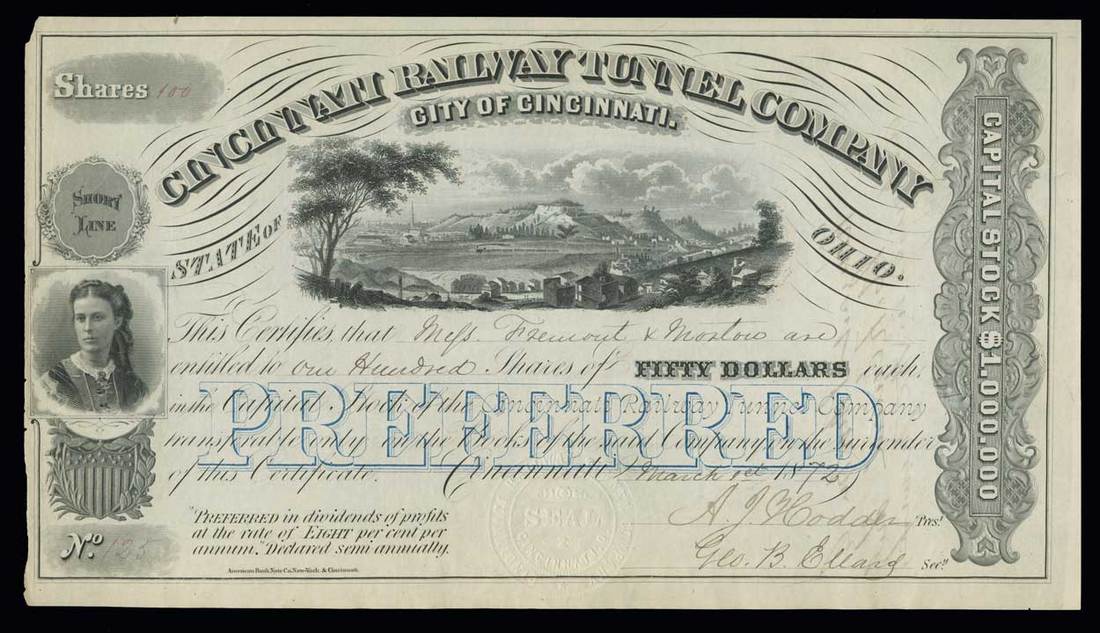 Shares 100
CINCINNATI RAILWAY TUNNEL COMPANY
CITY OF CINCINNATI.
STATE OF OHIO.
SHORT
LINE
CAPITAL STOCK $1,000.000
This Certifies that Mess. Fremont & Morton are
entitled to One Hundred Shares of FIFTY DOLLARS each,
in the Capital Stock of the Cincinnati Railway Tunnel Company
transferable only on the Books of the said Company on the surrender
of this Certificate. Cincinnati March 1st 1872
PREFERRED
"PREFERRED in dividends of profits
at the rate of EIGHT per cent per
annum." Declared semi annually.
SEAL
A. J. Hodder Prest.
Geo. B. Ellard Secy.
No. 125
American Bank Note Co. New-York & Cincinnati.